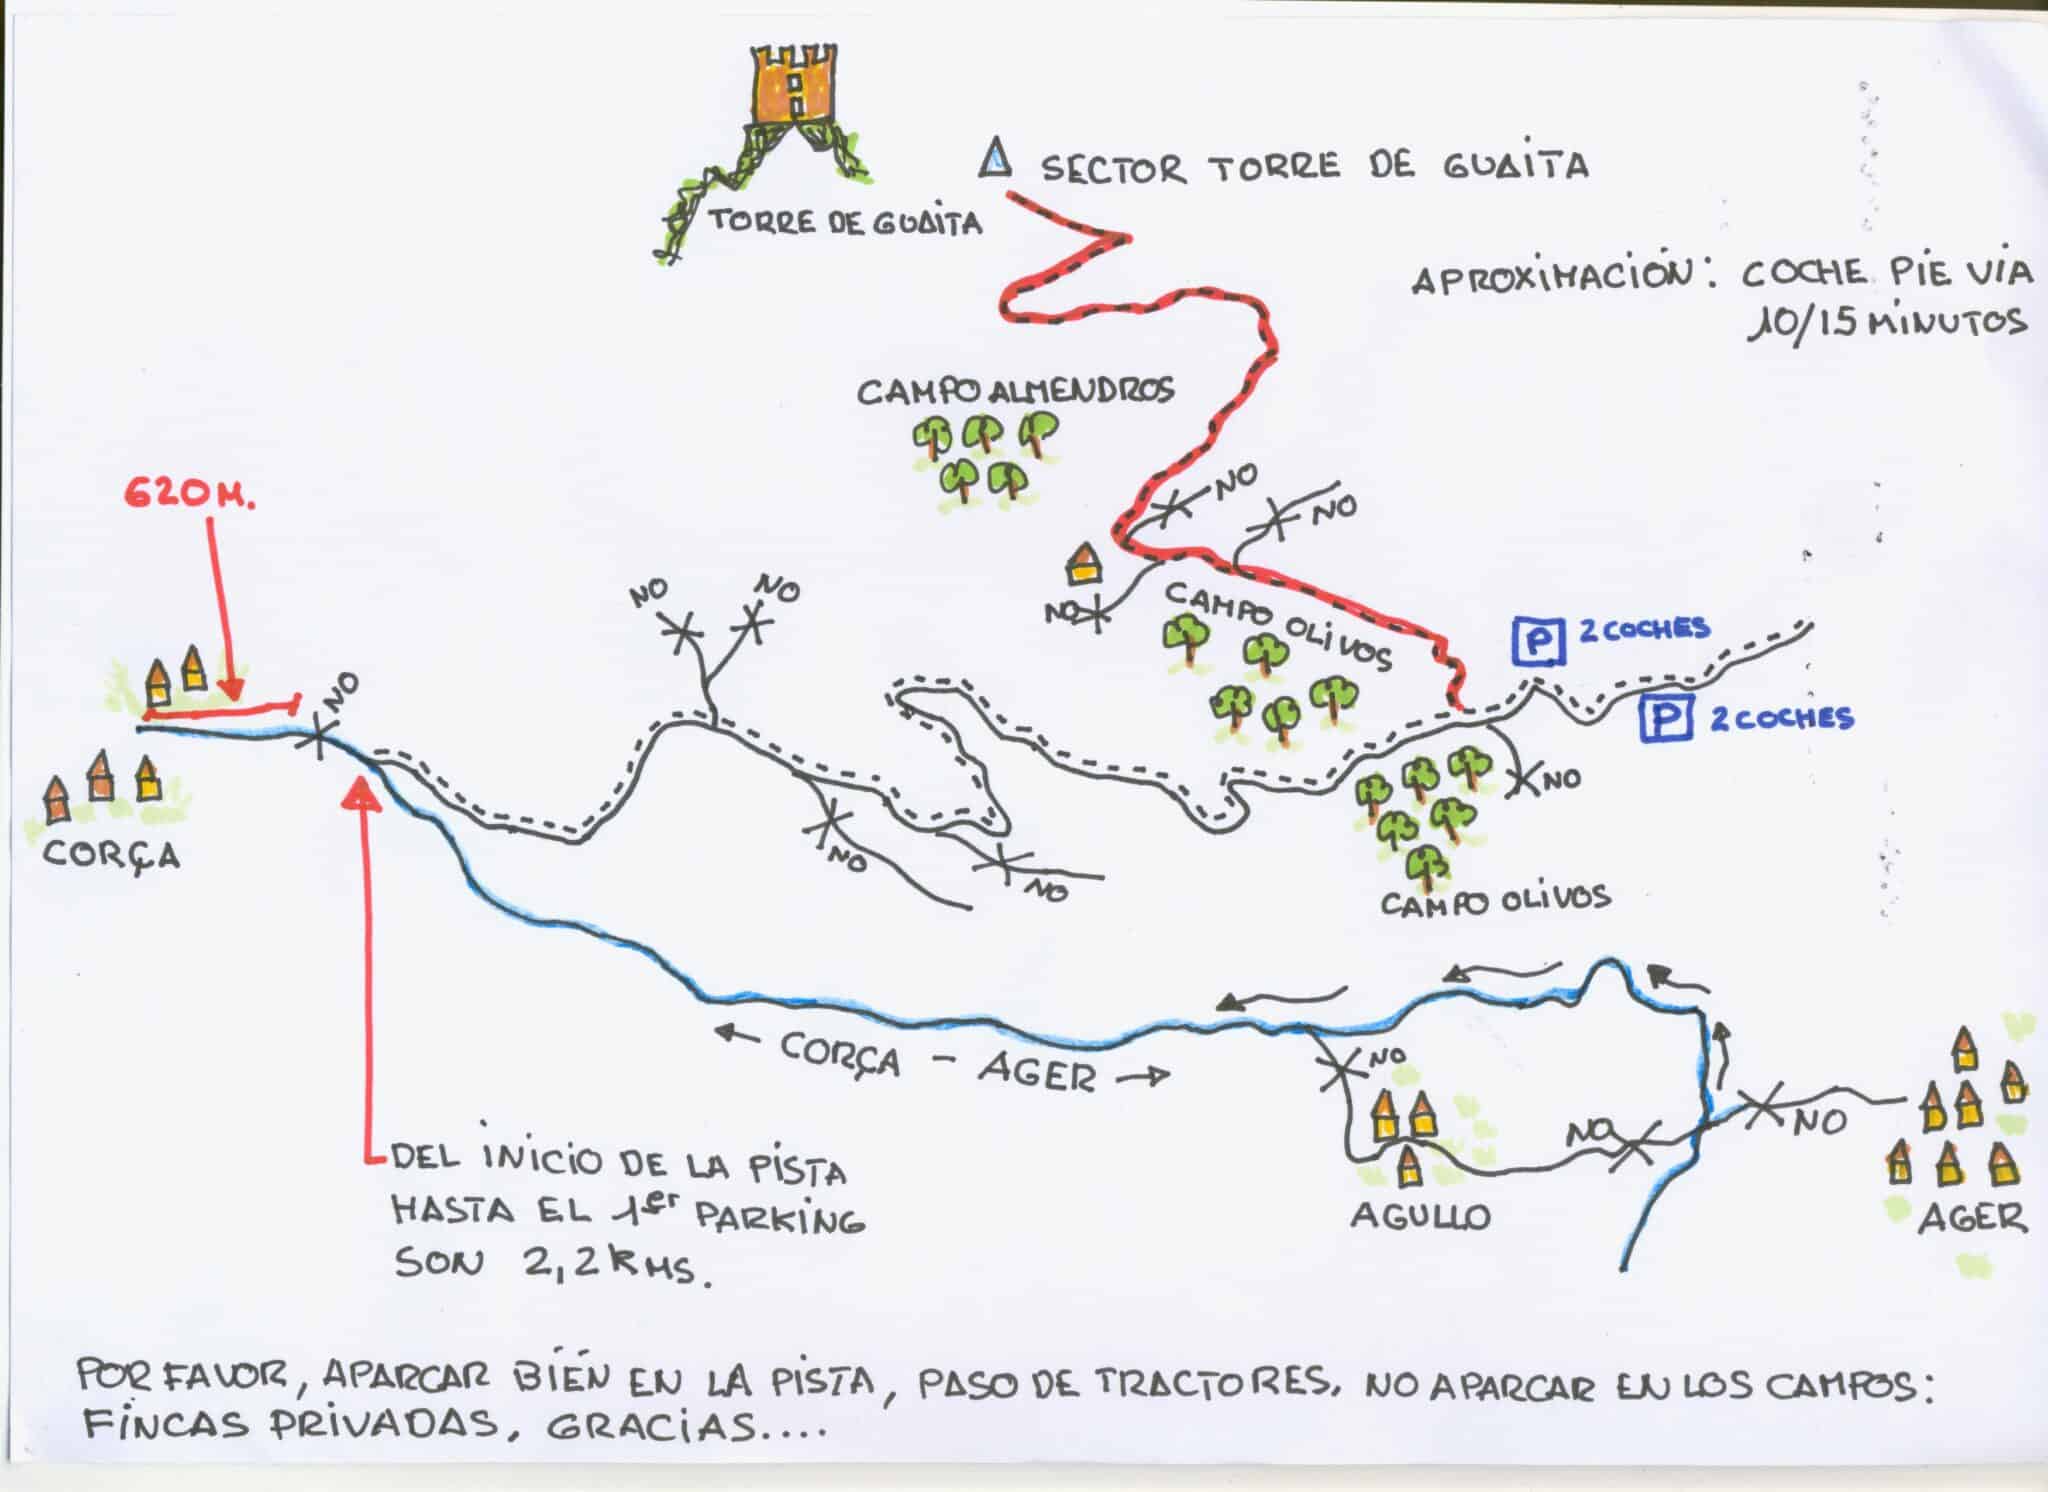 SECTOR TORRE DE GUAITA
TORRE DE GUAITA
APROXIMACIÓN: COCHE PIE VIA
10/15 MINUTOS
CAMPO ALMENDROS
620 M.
NO
NO
NO
NO
NO
NO
CAMPO OLIVOS
P 2 COCHES
P 2 COCHES
NO
NO
NO
NO
CORÇA
CAMPO OLIVOS
← CORÇA - AGER →
NO
NO
NO
AGULLO
AGER
DEL INICIO DE LA PISTA
HASTA EL 1er PARKING
SON 2,2 KMS.
POR FAVOR, APARCAR BIËN EN LA PISTA, PASO DE TRACTORES. NO APARCAR EN LOS CAMPOS:
FINCAS PRIVADAS, GRACIAS....